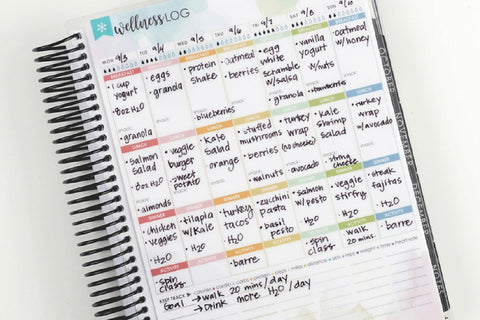 wellness LOG
MON 9/3 TUE 9/4 WED 9/5 THU 9/6 FRI 9/7 SAT 9/8 SUN 9/10
BREAKFAST
• 1 cup yogurt
• 8oz H2O
snack:
• granola
• eggs
• granola
snack:
• protein shake
snack:
• blueberries
• oatmeal
• berries
snack:
• egg white scramble w/salsa
snack:
• granola
• vanilla yogurt
w/nuts
snack:
• strawberries
• oatmeal w/honey
LUNCH
• salmon salad
• 8oz H2O
snack:
• almonds
• veggie burger
• sweet potato
snack:
• kale salad
• orange
snack:
• stuffed mushrooms
• berries
snack:
• walnuts
• turkey wrap (no cheese)
snack:
• avocado
• kale shrimp salad
snack:
• string cheese
• turkey wrap w/avocado
DINNER
• chicken
• veggies
• H2O
• tilapia w/kale
• H2O
• turkey tacos
• H2O
• zucchini pasta
• basil pesto
• salmon w/pesto
• H2O
• veggie stirfry
• H2O
• steak fajitas
• H2O
ACTIVITY
• spin class
• barre
• spin class
• walk 20 mins.
• barre
KEEP TRACK
Goal → walk 20 mins/day
→ Drink more H2O/day
OCTOBER
NOVEMBER
DECEMBER